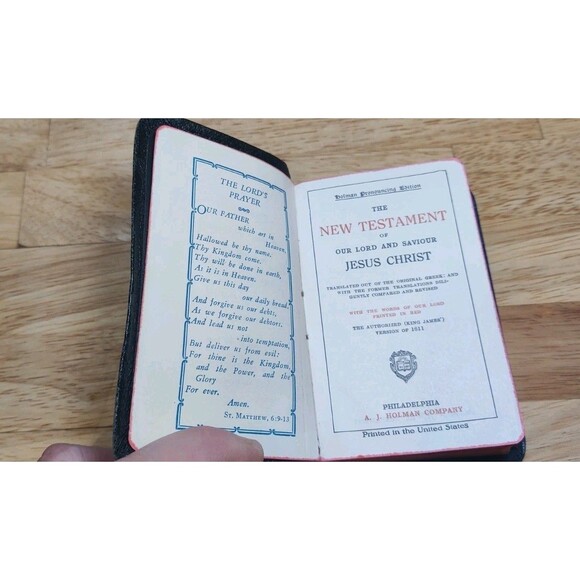 THE LORD'S
PRAYER
OUR FATHER
which art in
Heaven,
Hallowed be thy name.
Thy Kingdom come.
Thy will be done in earth,
As it is in Heaven.
Give us this day
our daily bread.
And forgive us our debts,
As we forgive our debtors.
And lead us not
into temptation,
But deliver us from evil:
For thine is the Kingdom,
and the Power, and the
Glory
For ever.
Amen.
ST. MATTHEW, 6:9-13
Holman Pronouncing Edition
THE
NEW TESTAMENT
OF
OUR LORD AND SAVIOUR
JESUS CHRIST
TRANSLATED OUT OF THE ORIGINAL GREEK: AND
WITH THE FORMER TRANSLATIONS DILI-
GENTLY COMPARED AND REVISED
WITH THE WORDS OF OUR LORD
PRINTED IN RED
THE AUTHORISED (KING JAMES')
VERSION OF 1611
PHILADELPHIA
A. J. HOLMAN COMPANY
Printed in the United States